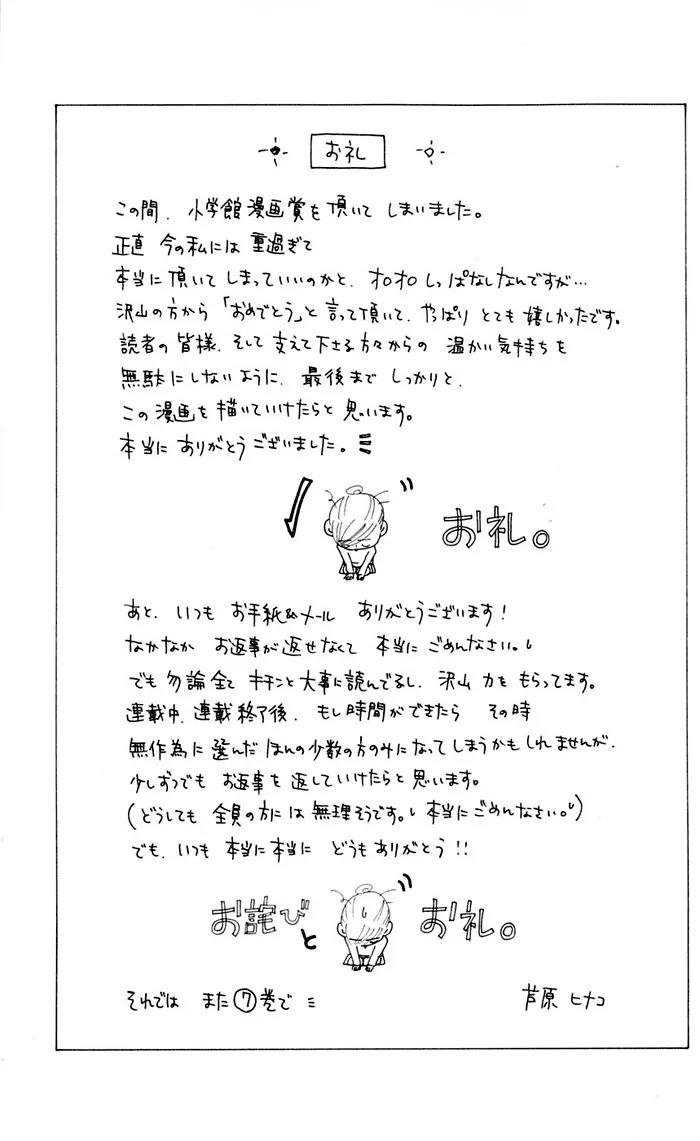 お礼
この間、小学館漫画賞を頂いて しまいました。
正直 今の私には 重過ぎて
本当に頂いて しまっていいのかと、オロオロしっぱなしなんですが…
沢山の方から「おめでとう」と言って頂いて、やっぱり とても嬉しかったです。
読者の皆様、そして支えて下さる方々からの 温かい気持ちを
無駄にしないように、最後まで しっかりと、
この漫画を描いていけたらと思います。
本当に ありがとうございました。
お礼。
あと、いつも お手紙&メール ありがとうございます!
なかなか お返事が返せなくて 本当に ごめんなさい。
でも勿論全て キチンと大事に読んでるし、沢山 力を もらってます。
連載中、連載終了後、もし時間ができたら その時
無作為に選んだ ほんの少数の方のみになってしまうかもしれませんが、
少しずつでも お返事を返していけたらと思います。
(どうしても 全員の方には無理そうです。本当にごめんなさい。)
でも、いつも 本当に本当に どうもありがとう!!
お詫びと お礼。
それでは また⑦巻で
芦原 ヒナコ